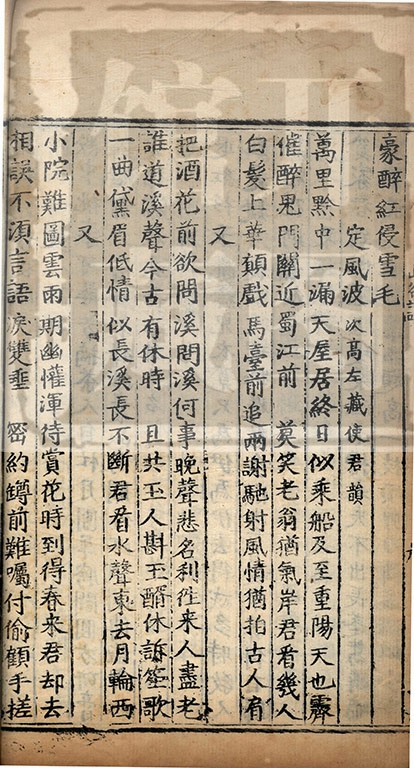 豪醉紅侵雪毛
定風波次高左藏使君韻
萬里黔中一漏天屋居終日似乘船及至重陽天也霽
催醉鬼門關近蜀江前 莫笑老翁猶氣岸君看幾人
白髮上華顛戲馬臺前追兩謝馳射風情猶拍古人肩
又
把酒花前欲問溪問溪何事晚聲悲名利徃來人盡老
誰道溪聲今古有休時 且共玉人斟玉醑休訴笙歌
一曲黛眉低情似長溪長不斷君看水聲東去月輪西
又
小院難圖雲雨期幽懽渾待賞花時到得春來君却去
相誤不湏言語淚雙垂 密約罇前難囑付偷顧手搓